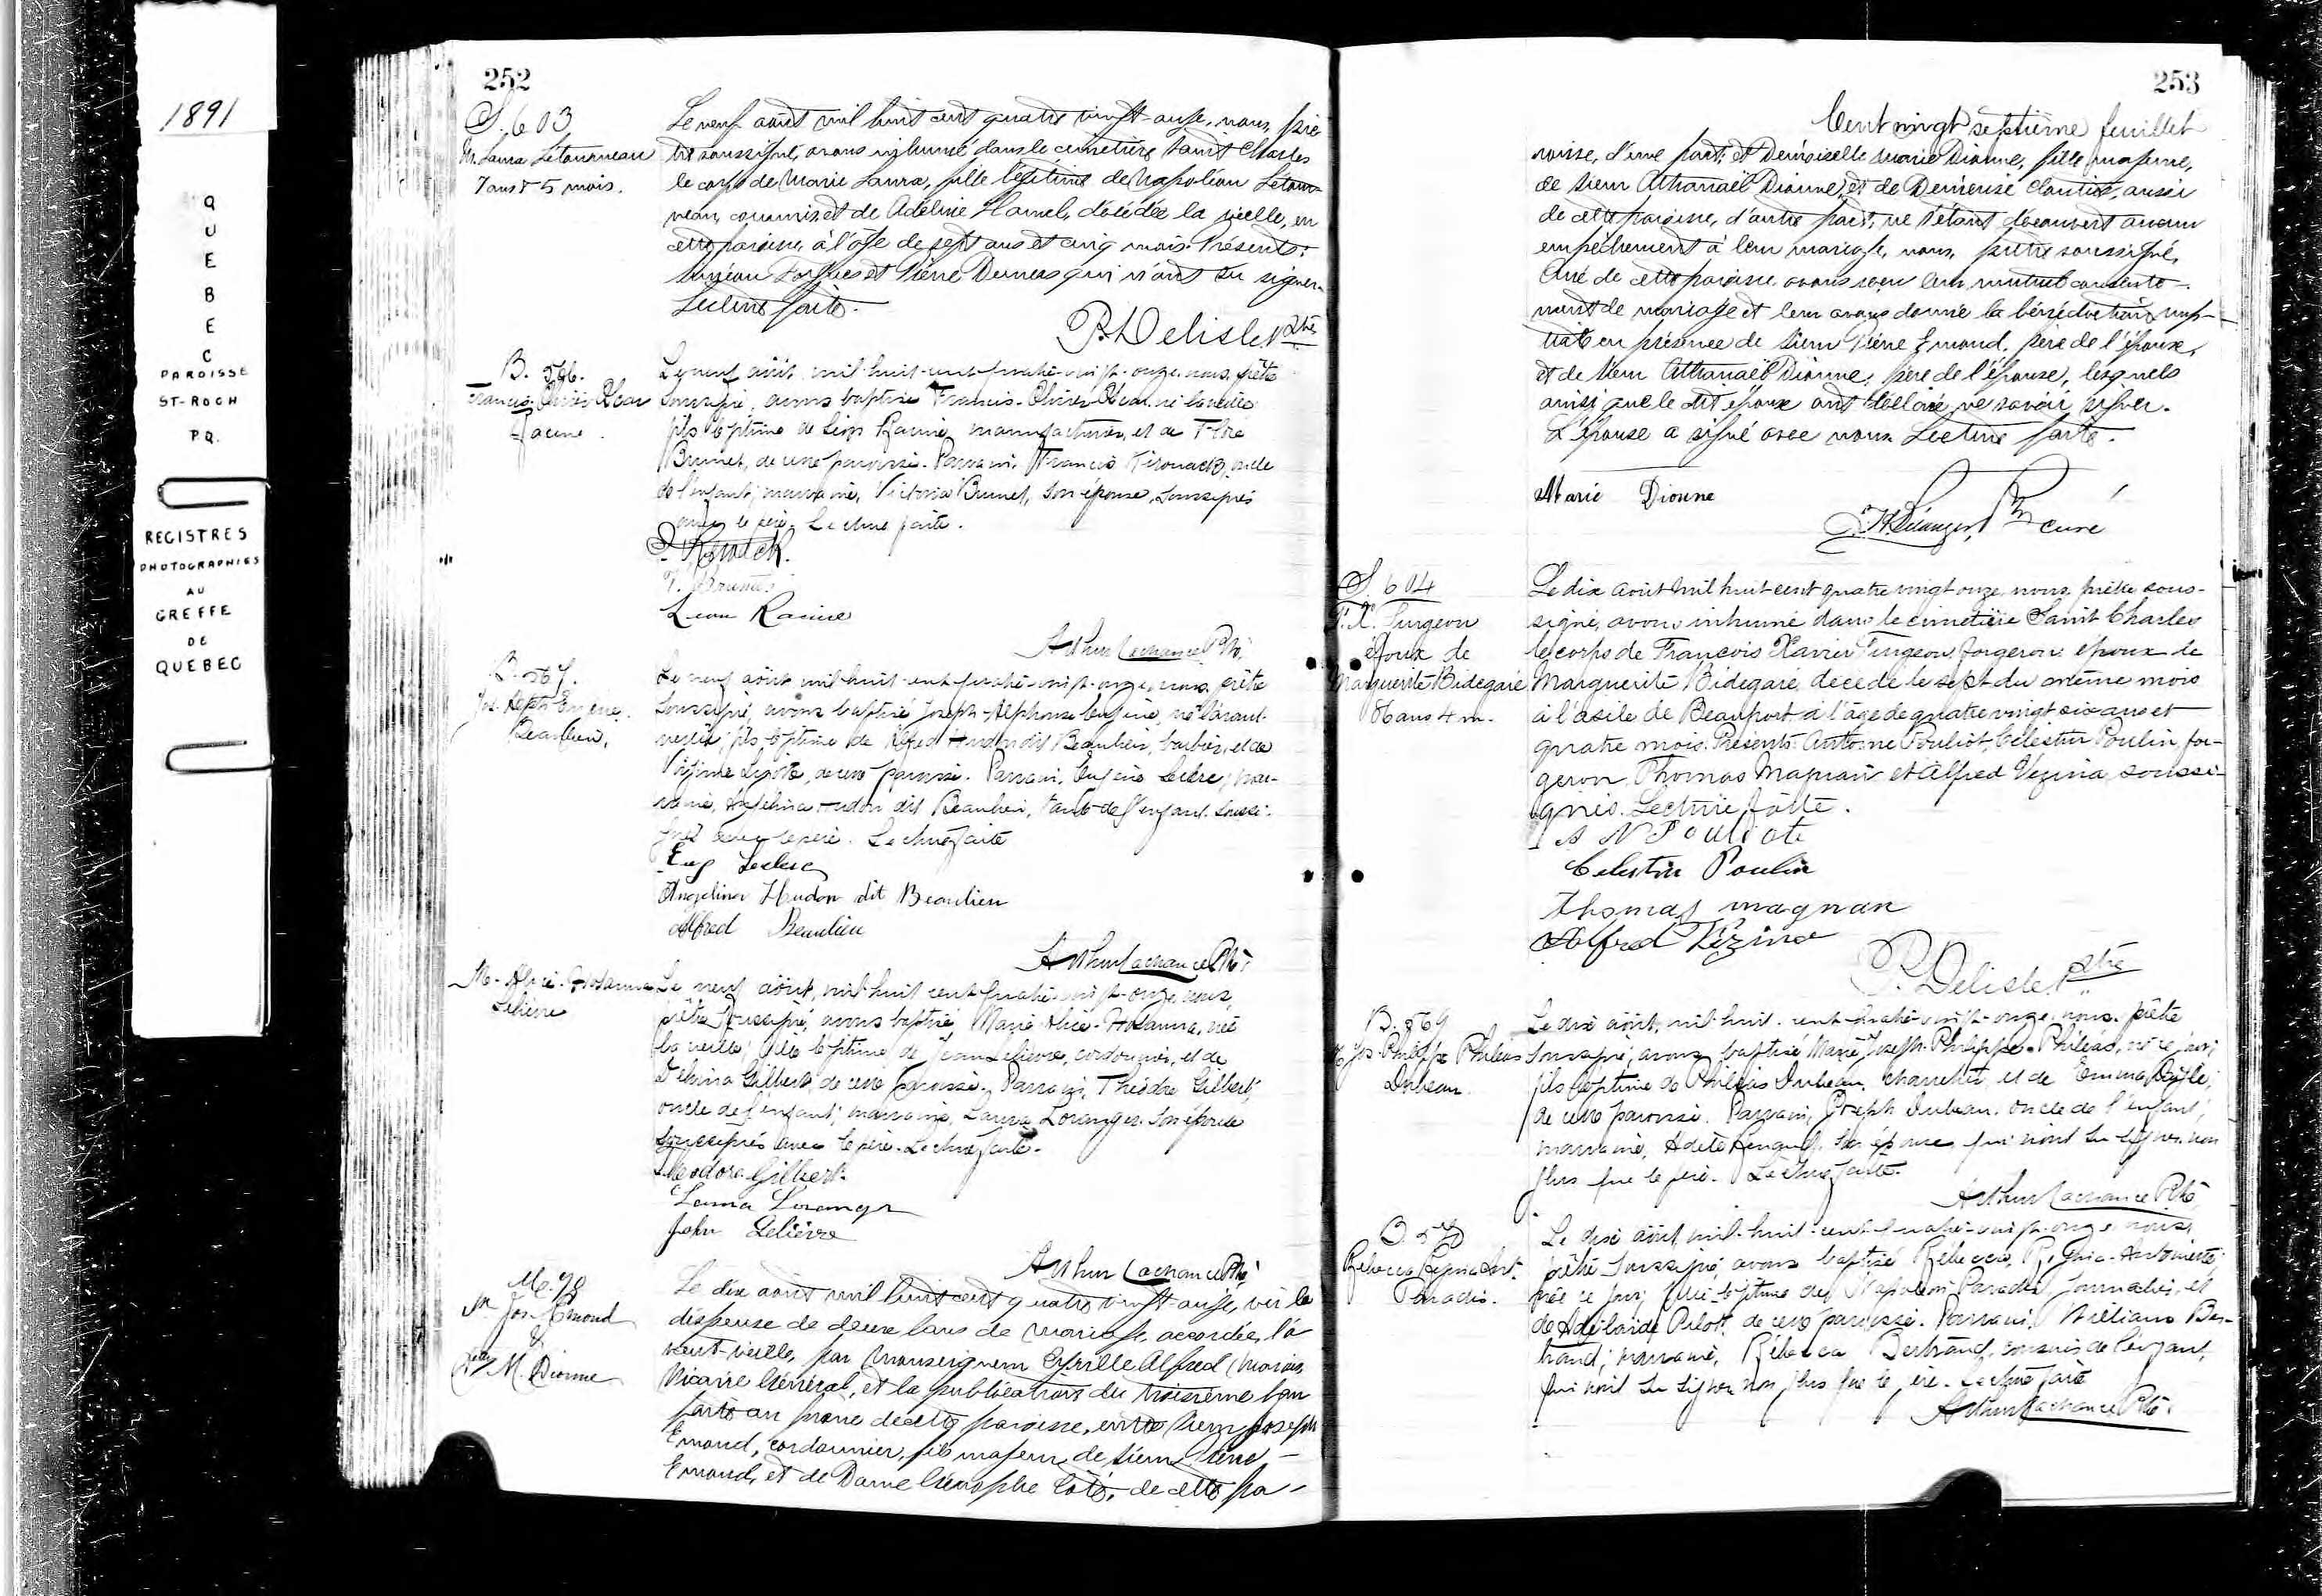 1891
QUEBEC
PAROISSE
ST-ROCH
P.Q.
REGISTRES
PHOTOGRAPHIES
AU
GREFFE
DE
QUEBEC
252
S. 603
M. Laura Letourneau
7 ans & 5 mois.
Le neuf août mil huit cent quatre vingt-onze, nous, prê
tre soussigné, avons inhumé dans le cimetière Saint Charles
le corps de Marie Laura, fille légitime de Napoléon Letour-
neau, commis, et de Adeline Hamel, décédée la veille, en
cette paroisse, à l'âge de sept ans et cinq mois. Présents:
et Pierre Demers qui n'ont su signer.
Lecture faite.
P. Delisle Ptre
B. 566.
Francis-Olivier-Oscar
Racine.
Le neuf août, mil-huit-cent-quatre-vingt-onze, nous, prêtre
soussigné, avons baptisé Francis-Olivier-Oscar, né la veille
fils légitime de Léon Racine, manufacturier, et de
Brunet, de cette paroisse. Parrain, Francis Kirouack, oncle
de l'enfant; marraine, Victoria Brunet, son épouse, soussignés
avec le père. Lecture faite.
Leon Racine
Arthur Lachance Ptre.
B. 567.
Jos. Alph. Eugène
Beaulieu.
Le neuf août mil-huit-cent-quatre-vingt-onze, nous, prêtre
soussigné, avons baptisé Joseph-Alphonse-Eugène, né l'avant-
veille, fils légitime de Alfred Hudon dit Beaulieu, barbier, et de
de cette paroisse. Parrain, Eugène Leclerc; mar-
raine, Angélina Hudon dit Beaulieu, tante de l'enfant, soussi-
gnés avec le père. Lecture faite
Eug Leclerc
Angelina Hudon dit Beaulieu
Alfred Beaulieu
Arthur Lachance Ptre
M-Alice-Rosanna
Lelièvre
Le neuf août, mil-huit-cent-quatre-vingt-onze, nous,
prêtre soussigné, avons baptisé, Marie-Alice-Rosanna, née
la veille, fille légitime de Jean Lelièvre, cordonnier, et de
Gilbert, de cette paroisse. Parrain, Théodore Gilbert,
oncle de l'enfant; marraine, Laura Loranger, son épouse
soussignés avec le père. Lecture faite.
Theodore Gilbert
Laura Loranger
John Lelièvre
Arthur Lachance Ptre
M. 98
Mr Jos. Emond
&
Delle M. Dionne
Le dix août mil huit cent quatre vingt-onze, vu la
dispense de deux bans de mariage, accordée, l'a
vant-veille, par Monseigneur Cyrille Alfred Marois,
Vicaire Général, et la publication du troisième ban
faite au prône de cette paroisse, entre Sieur Joseph
Emond, cordonnier, fils majeur de Sieur Pierre
Emond, et de Dame Côté, de cette pa-
253
Cent vingt septième feuillet
roisse, d'une part; et Demoiselle Marie Dionne, fille majeure,
de Sieur Athanaël Dionne, et de Cloutier, aussi
de cette paroisse, d'autre part; ne s'étant découvert aucun
empêchement à leur mariage, nous, prêtre soussigné,
Curé de cette paroisse avons reçu leur mutuel consente-
ment de mariage et leur avons donné la bénédiction nup-
tiale en présence de Sieur Pierre Emond, père de l'époux,
et de Sieur Athanaël Dionne, père de l'épouse, lesquels
ainsi que le dit époux ont déclaré ne savoir signer.
L'épouse a signé avec nous. Lecture faite.
Marie Dionne
Bélanger, Ptre curé
S. 604
F. X. Turgeon
époux de
Marguerite Bidegaré
86 ans 4 m.
Le dix août mil huit cent quatre vingt onze, nous, prêtre sous-
signé, avons inhumé dans le cimetière Saint Charles
le corps de François Xavier Turgeon, forgeron, époux de
Marguerite Bidegaré, décédé le sept du même mois
à l'asile de Beauport à l'âge de quatre vingt six ans et
quatre mois. Présents: Antoine Pouliot, Célestin Poulin, for-
geron, Thomas Magnan et Alfred Vezina, soussi-
gnés. Lecture faite.
A N Pouliote
Celestin Poulin
Thomas magnan
Alfred Vézina
P. Delisle Ptre
B. 569
M Jos. Philippe Philéas
Dubeau.
Le dix août, mil-huit-cent-quatre-vingt-onze, nous, prêtre
soussigné, avons baptisé Marie Joseph-Philippe-Philéas, né ce jour;
fils légitime de Philéas Dubeau, charretier, et de Emma
de cette paroisse. Parrain, Joseph Dubeau, oncle de l'enfant;
marraine, Adèle Renaud, son épouse, qui n'ont su signer, non
plus que le père. Lecture faite.
Arthur Lachance Ptre
B. 570
Rebecca Regina Ant.
Paradis.
Le dix août, mil-huit-cent-quatre-vingt-onze, nous,
prêtre soussigné, avons baptisé Rebecca-Régina-Antoinette,
née ce jour; fille légitime de Napoléon Paradis, journalier, et
de Adélaïde Pilot, de cette paroisse. Parrain, William Ber-
trand; marraine, Rébecca Bertrand, cousins de l'enfant,
qui n'ont su signer non plus que le père. Lecture faite
Arthur Lachance Ptre.